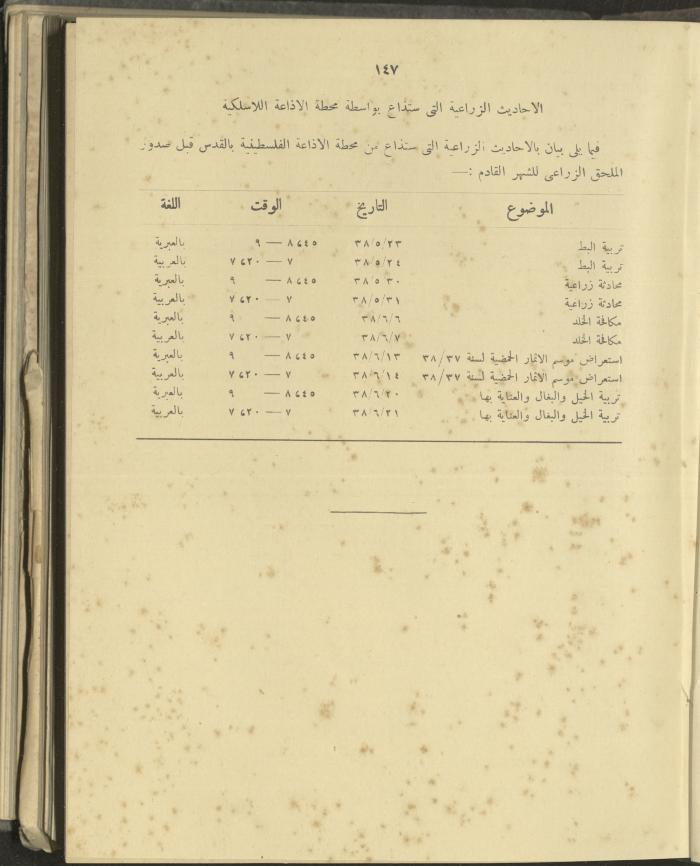 ١٤٧
الاحاديث الزراعية التى ستذاع بواسطة محطة الاذاعة اللاسلكية
فيما يلى بيان بالاحاديث الزراعية التى ستذاع من محطة الاذاعة الفلسطينية بالقدس قبل صدور
الملحق الزراعى للشهر القادم :—
الموضوع التاريخ الوقت اللغة
تربية البط ٣٨/٥/٢٣ ٨٫٤٥ — ٩ بالعبرية
تربية البط ٣٨/٥/٢٤ ٧ — ٧٫٢٠ بالعربية
محادثة زراعية ٣٨/٥/٣٠ ٨٫٤٥ — ٩ بالعبرية
محادثة زراعية ٣٨/٥/٣١ ٧ — ٧٫٢٠ بالعربية
مكافحة الخلد ٣٨/٦/٦ ٨٫٤٥ — ٩ بالعبرية
مكافحة الخلد ٣٨/٦/٧ ٧ — ٧٫٢٠ بالعربية
استعراض موسم الاثمار الحمضية لسنة ٣٨/٣٧ ٣٨/٦/١٣ ٨٫٤٥ — ٩ بالعبرية
استعراض موسم الاثمار الحمضية لسنة ٣٨/٣٧ ٣٨/٦/١٤ ٧ — ٧٫٢٠ بالعربية
تربية الخيل والبغال والعناية بها ٣٨/٦/٢٠ ٨٫٤٥ — ٩ بالعبرية
تربية الخيل والبغال والعناية بها ٣٨/٦/٢١ ٧ — ٧٫٢٠ بالعربية